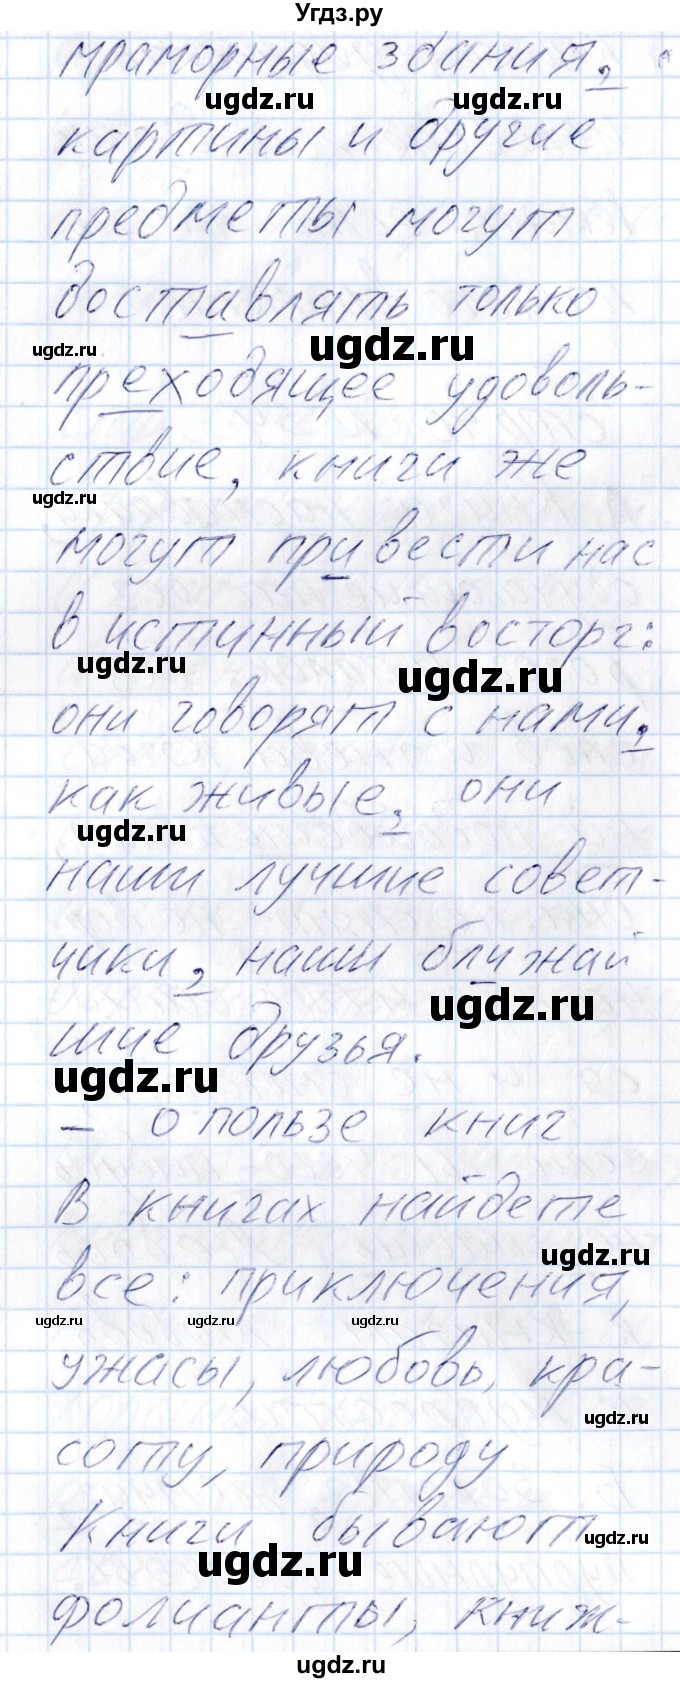 Угдз.ру
мраморные здания,
ugdz.ru ugdz.ru
картины и другие
предметы могут
доставлять только
ugdz.ru ugdz.ru
преходящее удоволь-
ствие, книги же
ugdz.ru
могут привести нас
в истинный восторг:
ugdz.ru ugdz.ru
они говорят с нами,
как живые, они
ugdz.ru
наши лучшие совет-
чики, наши ближай
ugdz.ru
шие друзья.
ugdz.ru
- о пользе книг
В книгах найдете
ugdz.ru
все: приключения,
ugdz.ru ugdz.ru ugdz.ru
ужасы, любовь, кра-
ugdz.ru
соту, природу
Книги бывают
ugdz.ru ugdz.ru
фолианты, книж-
ugdz.ru